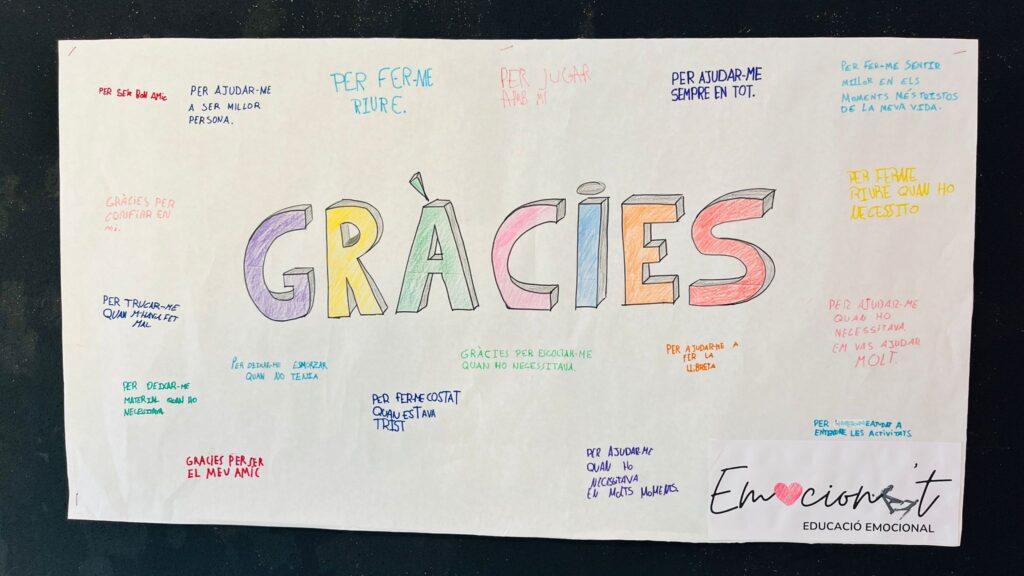 PER SER BON AMIC
PER AJUDAR-ME
A SER MILLOR
PERSONA.
PER FER-ME
RIURE.
PER JUGAR
AMB MI
PER AJUDAR-ME
SEMPRE EN TOT.
PER FER-ME SENTIR
MILLOR EN ELS
MOMENTS MÉS TRISTOS
DE LA MEVA VIDA.
GRÀCIES PER
CONFIAR EN
MI.
GRÀCIES
PER FER-ME
RIURE QUAN HO
NECESSITO
PER TRUCAR-ME
QUAN M'HAVIA FET
MAL
PER DEIXAR-ME ESMORZAR
QUAN NO TENIA.
GRÀCIES PER ESCOLTAR-ME
QUAN HO NECESSITAVA.
PER AJUDAR-ME A
FER LA
LLIBRETA
PER AJUDAR-ME
QUAN HO
NECESSITAVA
EM VAS AJUDAR
MOLT.
PER DEIXAR-ME
MATERIAL QUAN HO
NECESITAVA
PER FER-ME COSTAT
QUAN ESTAVA
TRIST
PER A
ENTENDRE LES ACTIVITATS.
GRACIES PER SER
EL MEU AMIC
PER AJUDAR-ME
QUAN HO
NECESSITAVA
EN MOLTS MOMENTS.
Emociona't
EDUCACIÓ EMOCIONAL